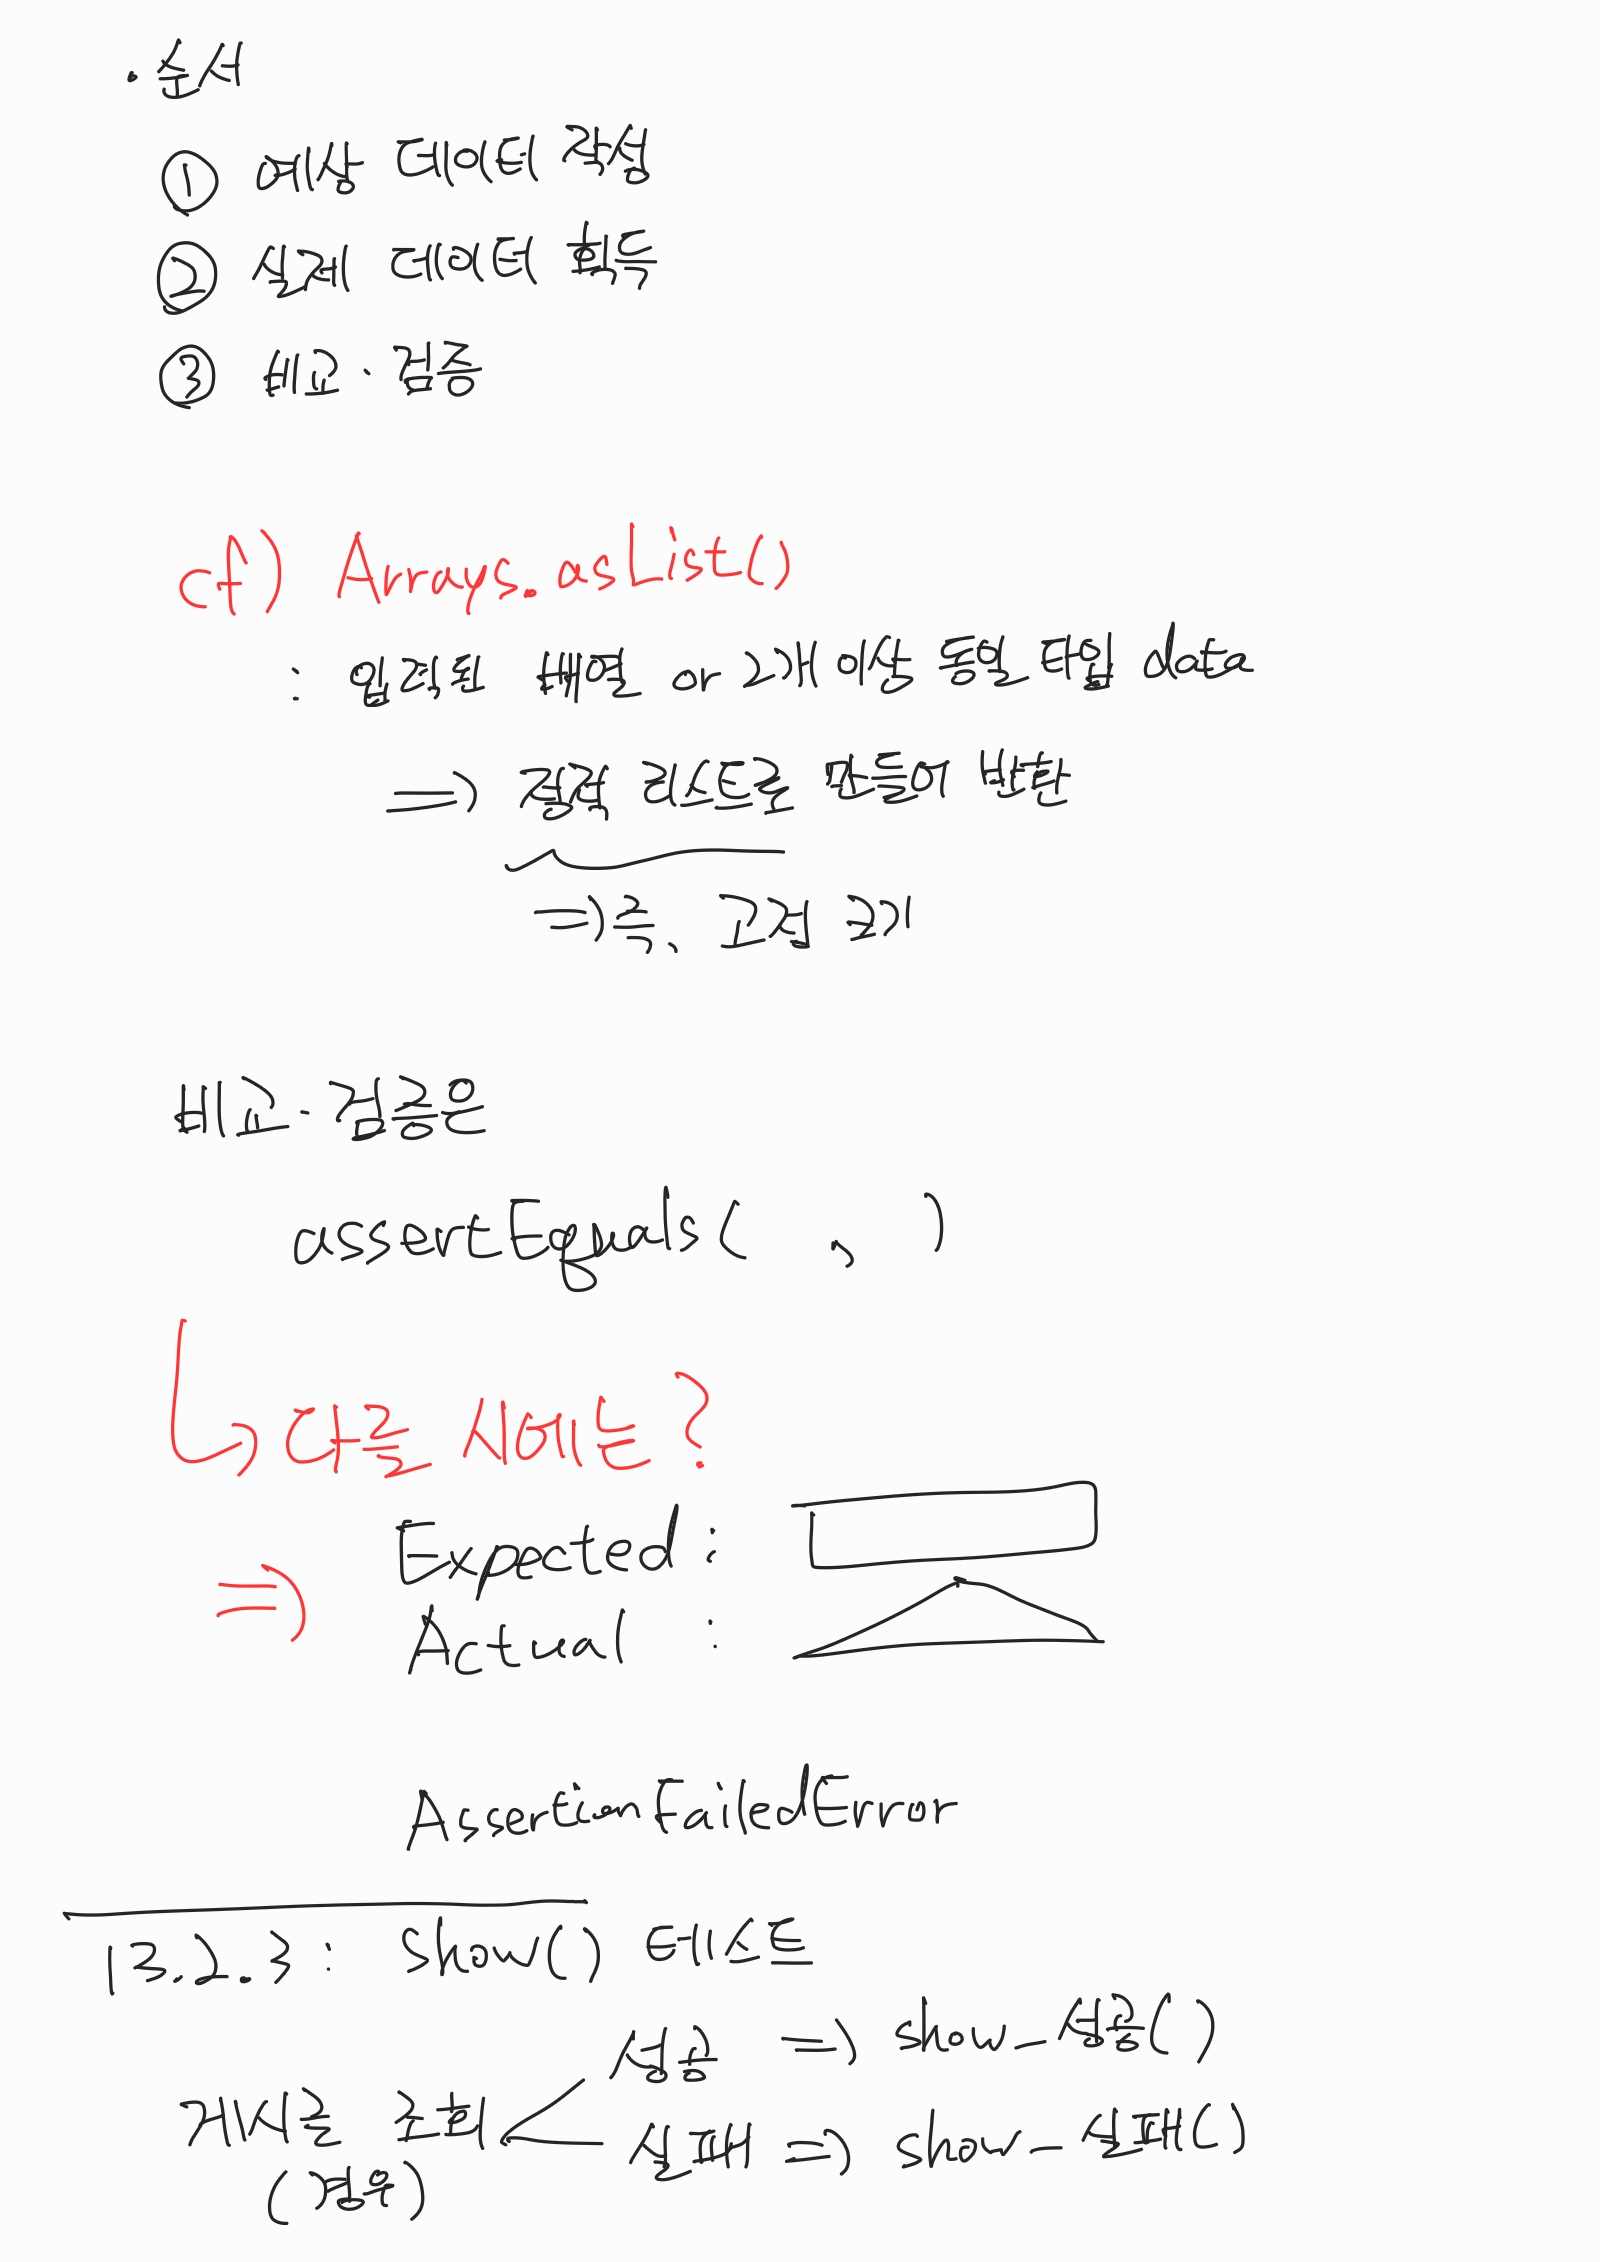 · 순서
① 예상 데이터 작성
② 실제 데이터 획득
③ 비교·검증
cf) Arrays.asList()
: 입력된 배열 or 2개 이상 동일 타입 data
=> 정적 리스트로 만들어 반환
=> 즉, 고정 크기
비교·검증은
assertEquals( , )
↳ 다를 시에는?
Expected :
=>
Actual :
AssertionFailedError
13.2.3 : show() 테스트
성공 => show_성공()
게시글 조회
실패 => show_실패()
(경우)